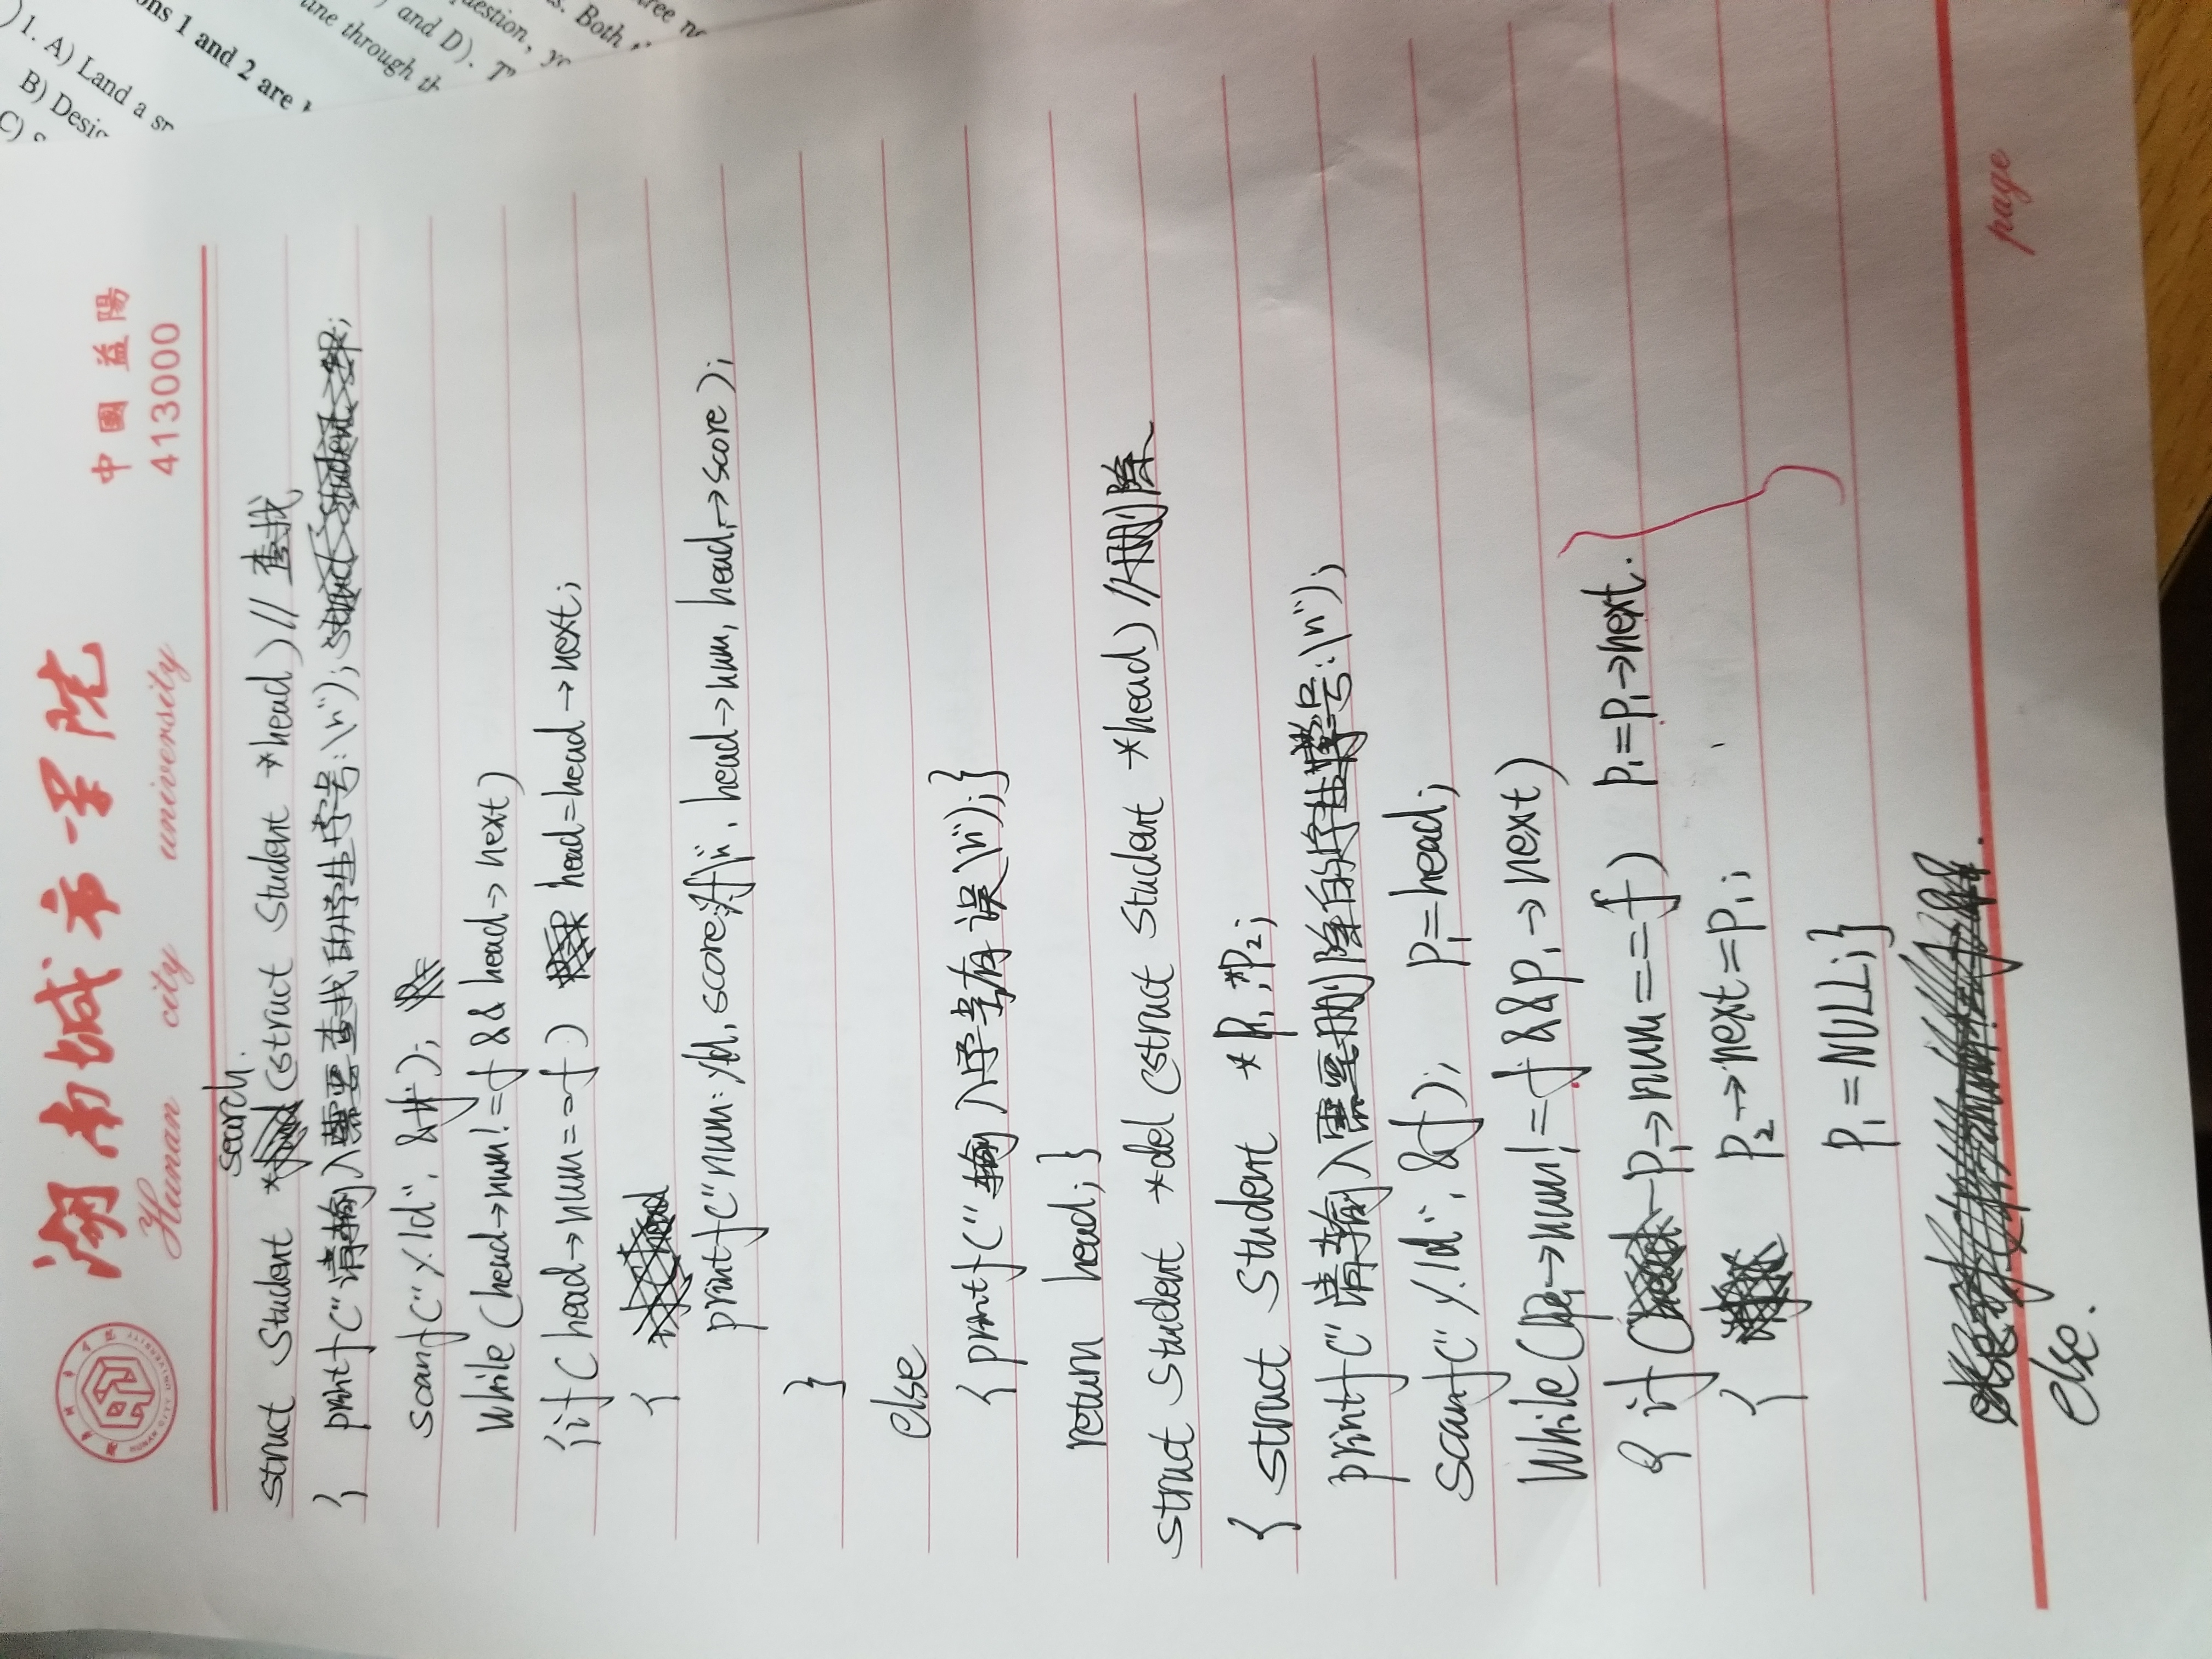 湖南城市学院
Hunan city university
中國 益陽
413000
search.
struct Student * (struct Student *head) // 查找
{ printf("请输入需要查找的学生学号:\n");
scanf("%d", &f);
while (head→num!=f && head→next)
{if(head→num==f) head=head→next;
{
printf("num:%d, score:%f\n", head→num, head→score);
}
else
{printf("输入学号有误\n");}
return head;}
struct Student *del (struct Student *head) //删除
{ struct Student *p1,*p2;
printf("请输入需要删除的学生学号:\n");
scanf("%d", &f); p1=head;
while(p1→num!=f&&p1→next)
{ if(p1→num==f) p1=p1→next.
{ p2→next=p1;
p1=NULL;}
else.
page
1. A) Land a
B) Desi
ons 1 and 2 are
and D).
Both